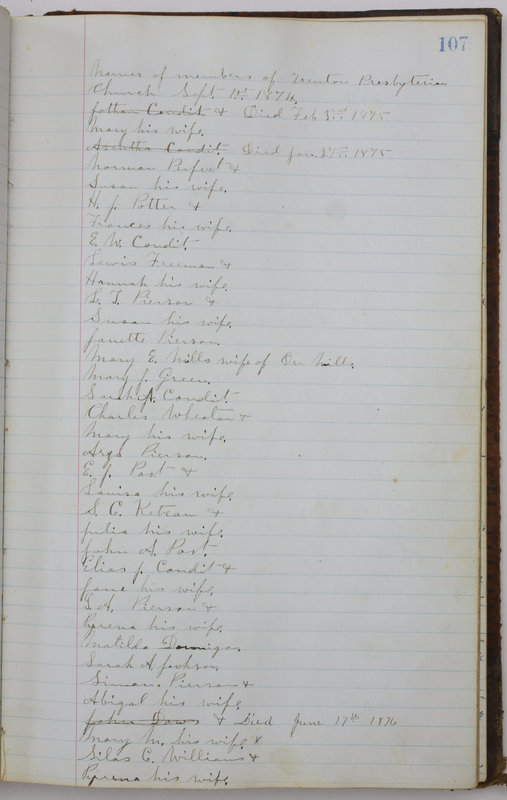 107
Names of members of Trenton Presbyterian
Church Sept. 1st 1874.
Jotham Condit & Died Feb 8th 1875
Mary his wife.
Asentha Condit. Died Jan 27th 1875
Norman Perfect &
Susan his wife.
H. J. Potter &
Frances his wife.
E. W. Condit
Lewis Freeman &
Hannah his wife.
L. T. Pierson &
Susan his wife.
Janette Pierson.
Mary E. Mills wife of Dr Mills.
Mary J. Green.
Sarah A. Condit.
Charles Wheaton &
Mary his wife.
Arga Pierson.
E. J. Post &
Louisa his wife.
S. C. Ketcam &
Julia his wife.
John A. Post.
Elias J. Condit &
Jane his wife.
S. A. Pierson &
Pyrena his wife.
Matilda
Sarah A. Jackson.
Simion. Pierson &
Abigal his wife.
John Daws & Died June 17th 1876
Mary M. his wife x
Silas C. Williams &
Pyrena his wife.